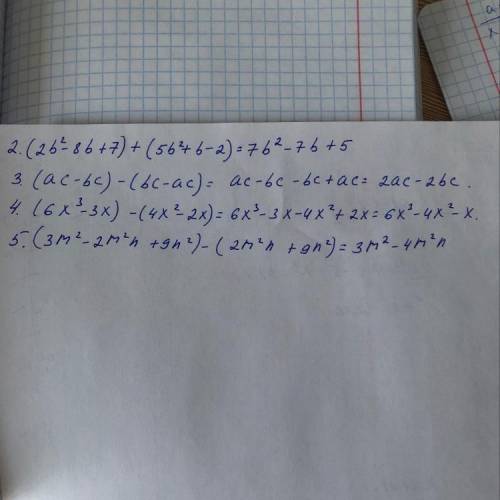 2. (2b²-8b+7)+(5b²+b-2)=7b²-7b+5
3. (ac-bc)-(bc-ac)= ac-bc-bc+ac= 2ac-2bc.
4. (6x³-3x)-(4x²-2x)=6x³-3x-4x²+2x=6x³-4x²-x.
5. (3m²-2m²n+9n²)-(2m²n+9n²)=3m²-4m²n